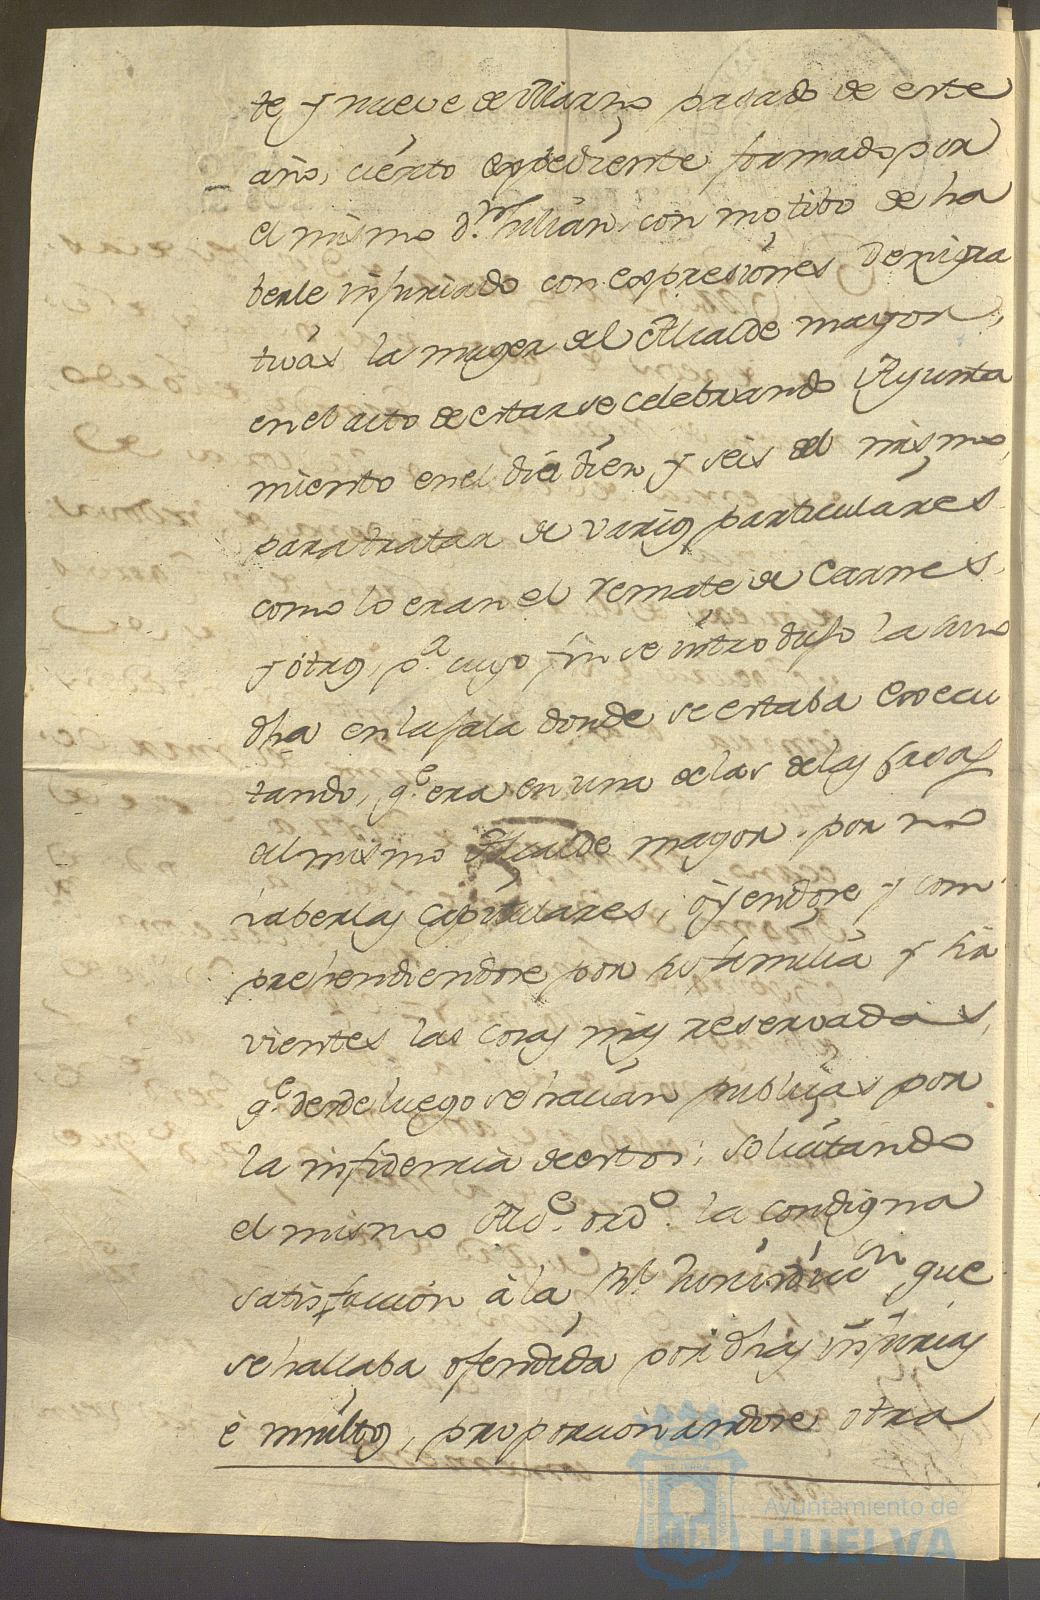 te y nueve de Marzo pasado de este
año, cierto expediente formado por
el mismo Dn. Julian, con motibo de ha
berle injuriado con expresiónes denigra
tivas la muger del Alcalde mayor,
en el acto de estarse celebrando Ayunta
miento en el dia diez y seis del mismo,
para tratar de varios particuláres
como lo eran el remate de Carnes,
y otros, pa. cuyo fin se introdujo la suso
dha en la sala donde se estaba execu
tando, qe. era en una de las de las Casas
del mismo Alcalde mayor, por no
haberlas capitulares, oyendose y com
prehendiendose por su familia y sir
vientes las cosas mas reservadas,
qe. desde luego se hacían publicas por
la infidencia de estos; solicitando
el mismo Alde. ordo. la condigna
satisfaccion á la Rl. Jurisdiccon que
se hallaba ofendida por dhas injurias
é insultos, proporcionandose otra
Ayuntamiento de
HUELVA